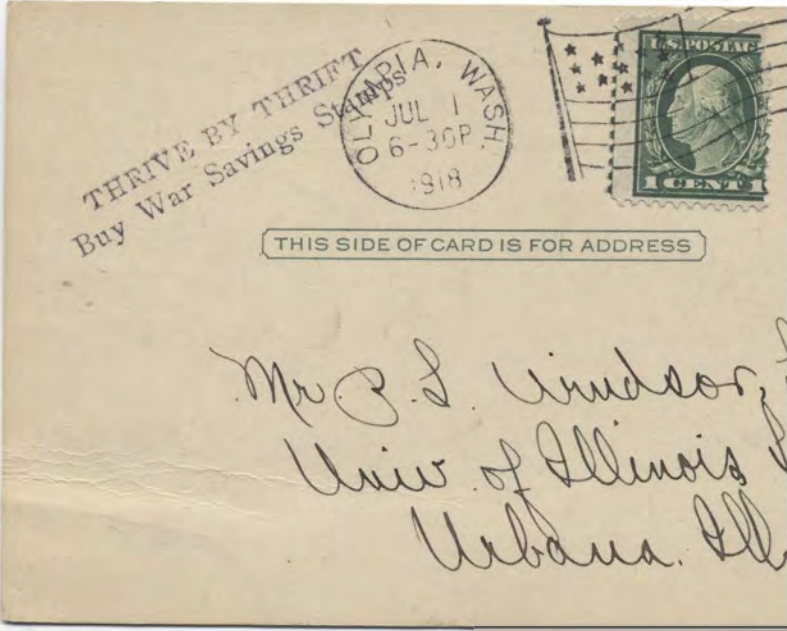 THRIVE BY THRIFT
Buy War Savings Stamps
OLYMPIA, WASH.
JUL 1
6-30P
1918
U.S. POSTAG
1 CENT 1
THIS SIDE OF CARD IS FOR ADDRESS
Mr. P. L. Windsor,
Univ. of Illinois
Urbana. Ill